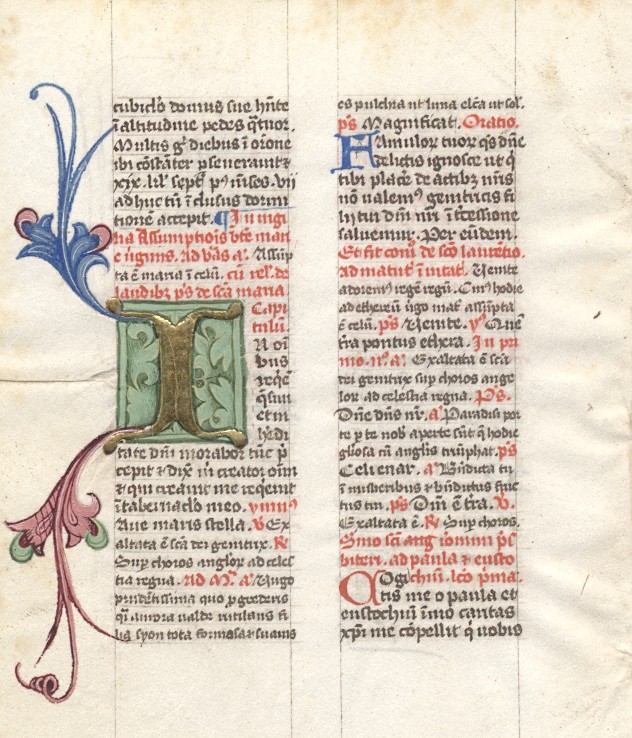 cubiclo domus sue hn̄te
ī altitudine pedes q̄tuor.
Multis gͦ diebus ī orōne
ibi cōstāter p̄seueraūit ⁊
xix. kl' sept' pͥ mīses. vii
adhuc tūi clusus dormi
tionē accepit. ¶ In uigi
lia Assumptiois bt̄e mari
e ūginis. Ad vās aͣ. Assūp
ta ē maria ī celū. cū rel'. de
laudibꝫ ps de scā maria
Capi
tulū.
N oī
bus
reqē
q̄siui
et in
h̓edi
tate dn̄i morabor tūc p̄
cepit ⁊ dix̄ m̄ creator oīm
⁊ qui creauit me reqͥeuit
ī tabernaclo meo. ymnꝰ
Aue maris stella. ℣ Ex
altata ē scā dei genitrix. ℟
Sup choros anglor̄ ad celes
tia regna. Ad M. aͣ. Uirgo
prudētissima quo p̄grederis
q̄i aurora valde rutilans fi
lia syon tota formosa ⁊ suauis
es pulchra ut luna elc̄a ut sol.
ps Magnificat. Oratio.
Famulor̄ tuor̄ qs̄ dn̄e
delictis ignosce ut qͥ
tibi placer̄ de actibꝫ nr̄is
nō ualemꝰ genitricis fi
lij tui dn̄i nr̄i ī t̄cessione
saluemur. Per eūdem.
Et fit com̄ de sc̄o laurētio.
ad matut' inuitat'. Uenite
adoremꝰ regē regū. Cuiꝰ hodie
ad ethereū ūgo mat̄ assūpta
ē celū. ps Uenite. yͫ Quē
t̄ra pontus ethera. In pri
mo. nͦ. aͣ. Exaltata ē scā
dei genitrix sup choros ange
lor̄ ad celestia regna. Ps.
Dn̄e dn̄s nr̄. aͣ Paradisi por
te p te nob̄ aperte sūt q̄ hodie
gl̄osa cū anglis triūphat. ps
Celi enar. aͣ Bn̄dicta tu
ī mulieribus ⁊ bn̄dictus fruc
tus tui. ps Dn̄i ē t̄ra. ℣.
Exaltata ē. ℟ Sup choros.
Sermo sc̄i ieronimi ps̄
biteri. ad paula ⁊ eusto
chiū. lc̄o p̄ma.
Cogi
tis me o paula et
eustochiū īmo caritas
xp̄i me cōpellit qͥ uobis